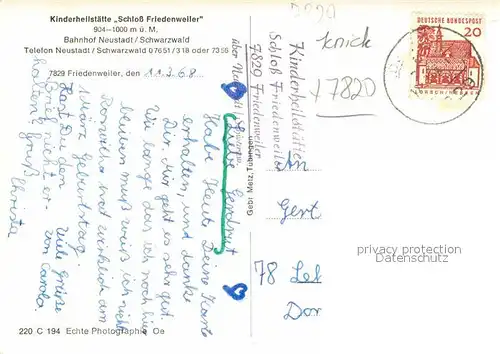 Kinderheilstätte „Schloß Friedenweiler"
904—1000 m ü. M.
Bahnhof Neustadt / Schwarzwald
Telefon Neustadt / Schwarzwald 07651 / 318 oder 7356
7829 Friedenweiler, den 11.3.68
Liebe Gertrut
Habe Heute Deine Karte
erhalten, und danke
Dir. Mir geht es sehr gut.
Wie lange das ich noch hier
bleiben muß weiß ich nicht
hat wirklich am
März Geburtstag.
Hast Du den
Brief nicht er-
halten
Gruß
Christa
viele Grüße
von Carola.
220 C 194 Echte Photographie Oe
Gebr. Metz, Tübingen
Kinderheilstätte
Schloß Friedenweiler
7829 Friedenweiler
über
knick
7820
DEUTSCHE BUNDESPOST
20
An
Gert
78
Dor
privacy protection
privacy protection